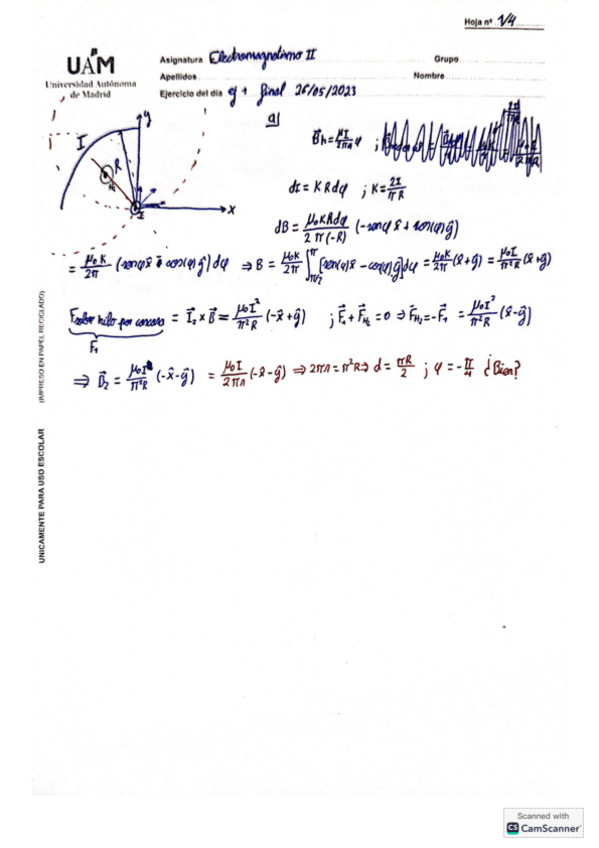 Hoja nº 1/4
UAM
Universidad Autónoma
de Madrid
Asignatura Electromagnetismo II Grupo
Apellidos Nombre
Ejercicio del día ej 1 final 26/05/2023
a)
I
R
y
x
I
B⃗h = μ₀I/2πr φ̂ ;
dI = K R dφ ; K = 2I/πR
dB = μ₀KRdφ/2π(-R) (-senφ x̂ + cosφ ŷ)
= μ₀K/2π (senφ x̂ - cosφ ŷ) dφ ⇒ B = μ₀K/2π ∫_{π/2}^{π} [senφ x̂ - cosφ ŷ] dφ = μ₀K/2π (x̂+ŷ) = μ₀I/π²R (x̂+ŷ)
F sobre hilo por corona = I⃗₂ × B⃗ = μ₀I²/π²R (-x̂+ŷ) ; F⃗₁ + F⃗H₂ = 0 ⇒ F⃗H₂ = -F⃗₁ = μ₀I²/π²R (x̂-ŷ)
F₁
⇒ B⃗₂ = μ₀I/π²R (-x̂-ŷ) = μ₀I/2πr (-x̂-ŷ) ⇒ 2πr = π²R ⇒ d = πR/2 ; φ = -π/4 ¿Bien?
(IMPRESO EN PAPEL RECICLADO)
UNICAMENTE PARA USO ESCOLAR
Scanned with
CS CamScanner